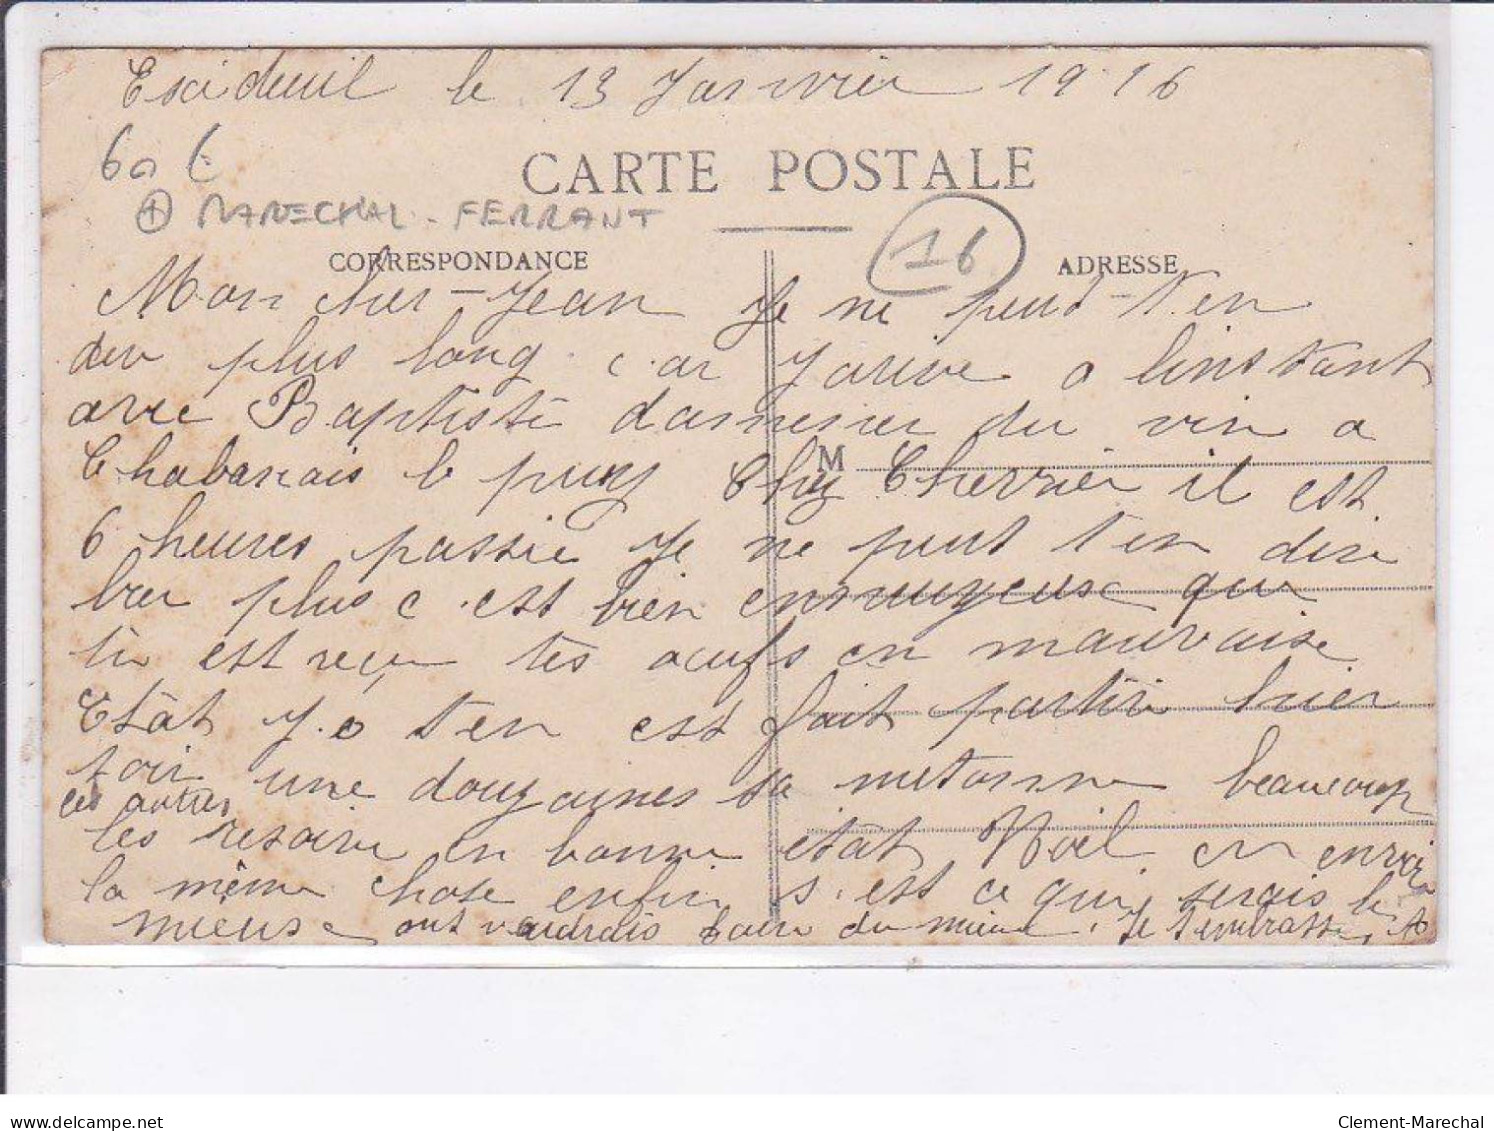 Exideuil le 13 Janvier 1916
60 €
+ MARECHAL-FERRANT
CARTE POSTALE
16
CORRESPONDANCE
ADRESSE
Mon cher Jean Je ne peut t'en
dir plus long car J'arive a linstant
avec Baptiste damener du vin a
Chabanais le puy Chez Cherrier il est
M
6 heures passie Je ne peut t'en dire
bien plus c'est bien ennuyeuse que
tu est reçu tes œufs en mauvaise
Etât J.o t'en est fait partir hier
soir une douzaines sa metonne beaucoup
les autres
les resoive en bonne etât Noël en envoi
la même chose enfin s'est ce qui serais le
mieuse ont voudrais faire du mieux. Je t'embrasse, A
delcampe.net
Clement-Marechal